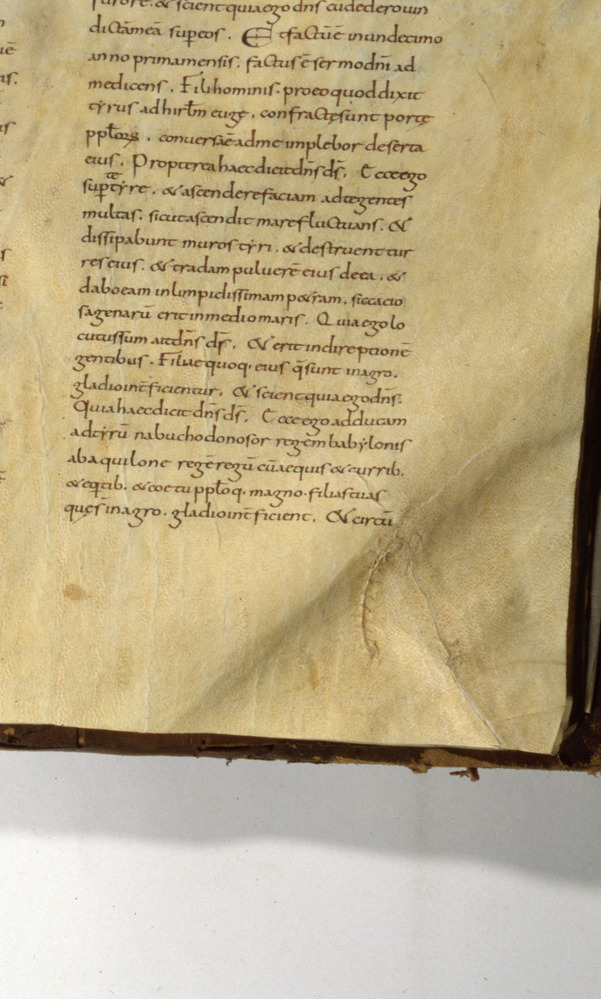 furore. & scient quia ego dns cu dedero vin
dictã meã sup eos. Et factũ ẽ in undecimo
anno prima mensis. factus ẽ sermo dni ad
me dicens. Fili hominis. pro eo quod dixit
tyrus ad hirlm euge. confractę sunt portę
pplorꝫ. conversa ẽ ad me implebor deserta
eius. Propterea haec dicit dns ds. Ecce ego
sup te tyre. & ascendere faciam ad te gentes
multas. sicut ascendit mare fluctuans. &
dissipabunt muros tyri. & destruent tur
res eius. & radam pulverẽ eius de ea. &
dabo eam in limpidissimam p&ram. siccacio
sagenarũ erit in medio maris. Quia ego lo
cutus sum ait dns ds. & erit in direptionẽ
gentibus. Filiae quoq. eius q̃ sunt in agro.
gladio int̃ficientur. & scient quia ego dns.
Quia haec dicit dns ds. Ecce ego adducam
ad tyrũ nabuchodonosor regem babylonis
ab aquilone regẽ regũ cũ aequis & currib.
& eqtib. & coetu pploq. magno. filias tuas
quęs in agro. gladio int̃ficient. & circũ